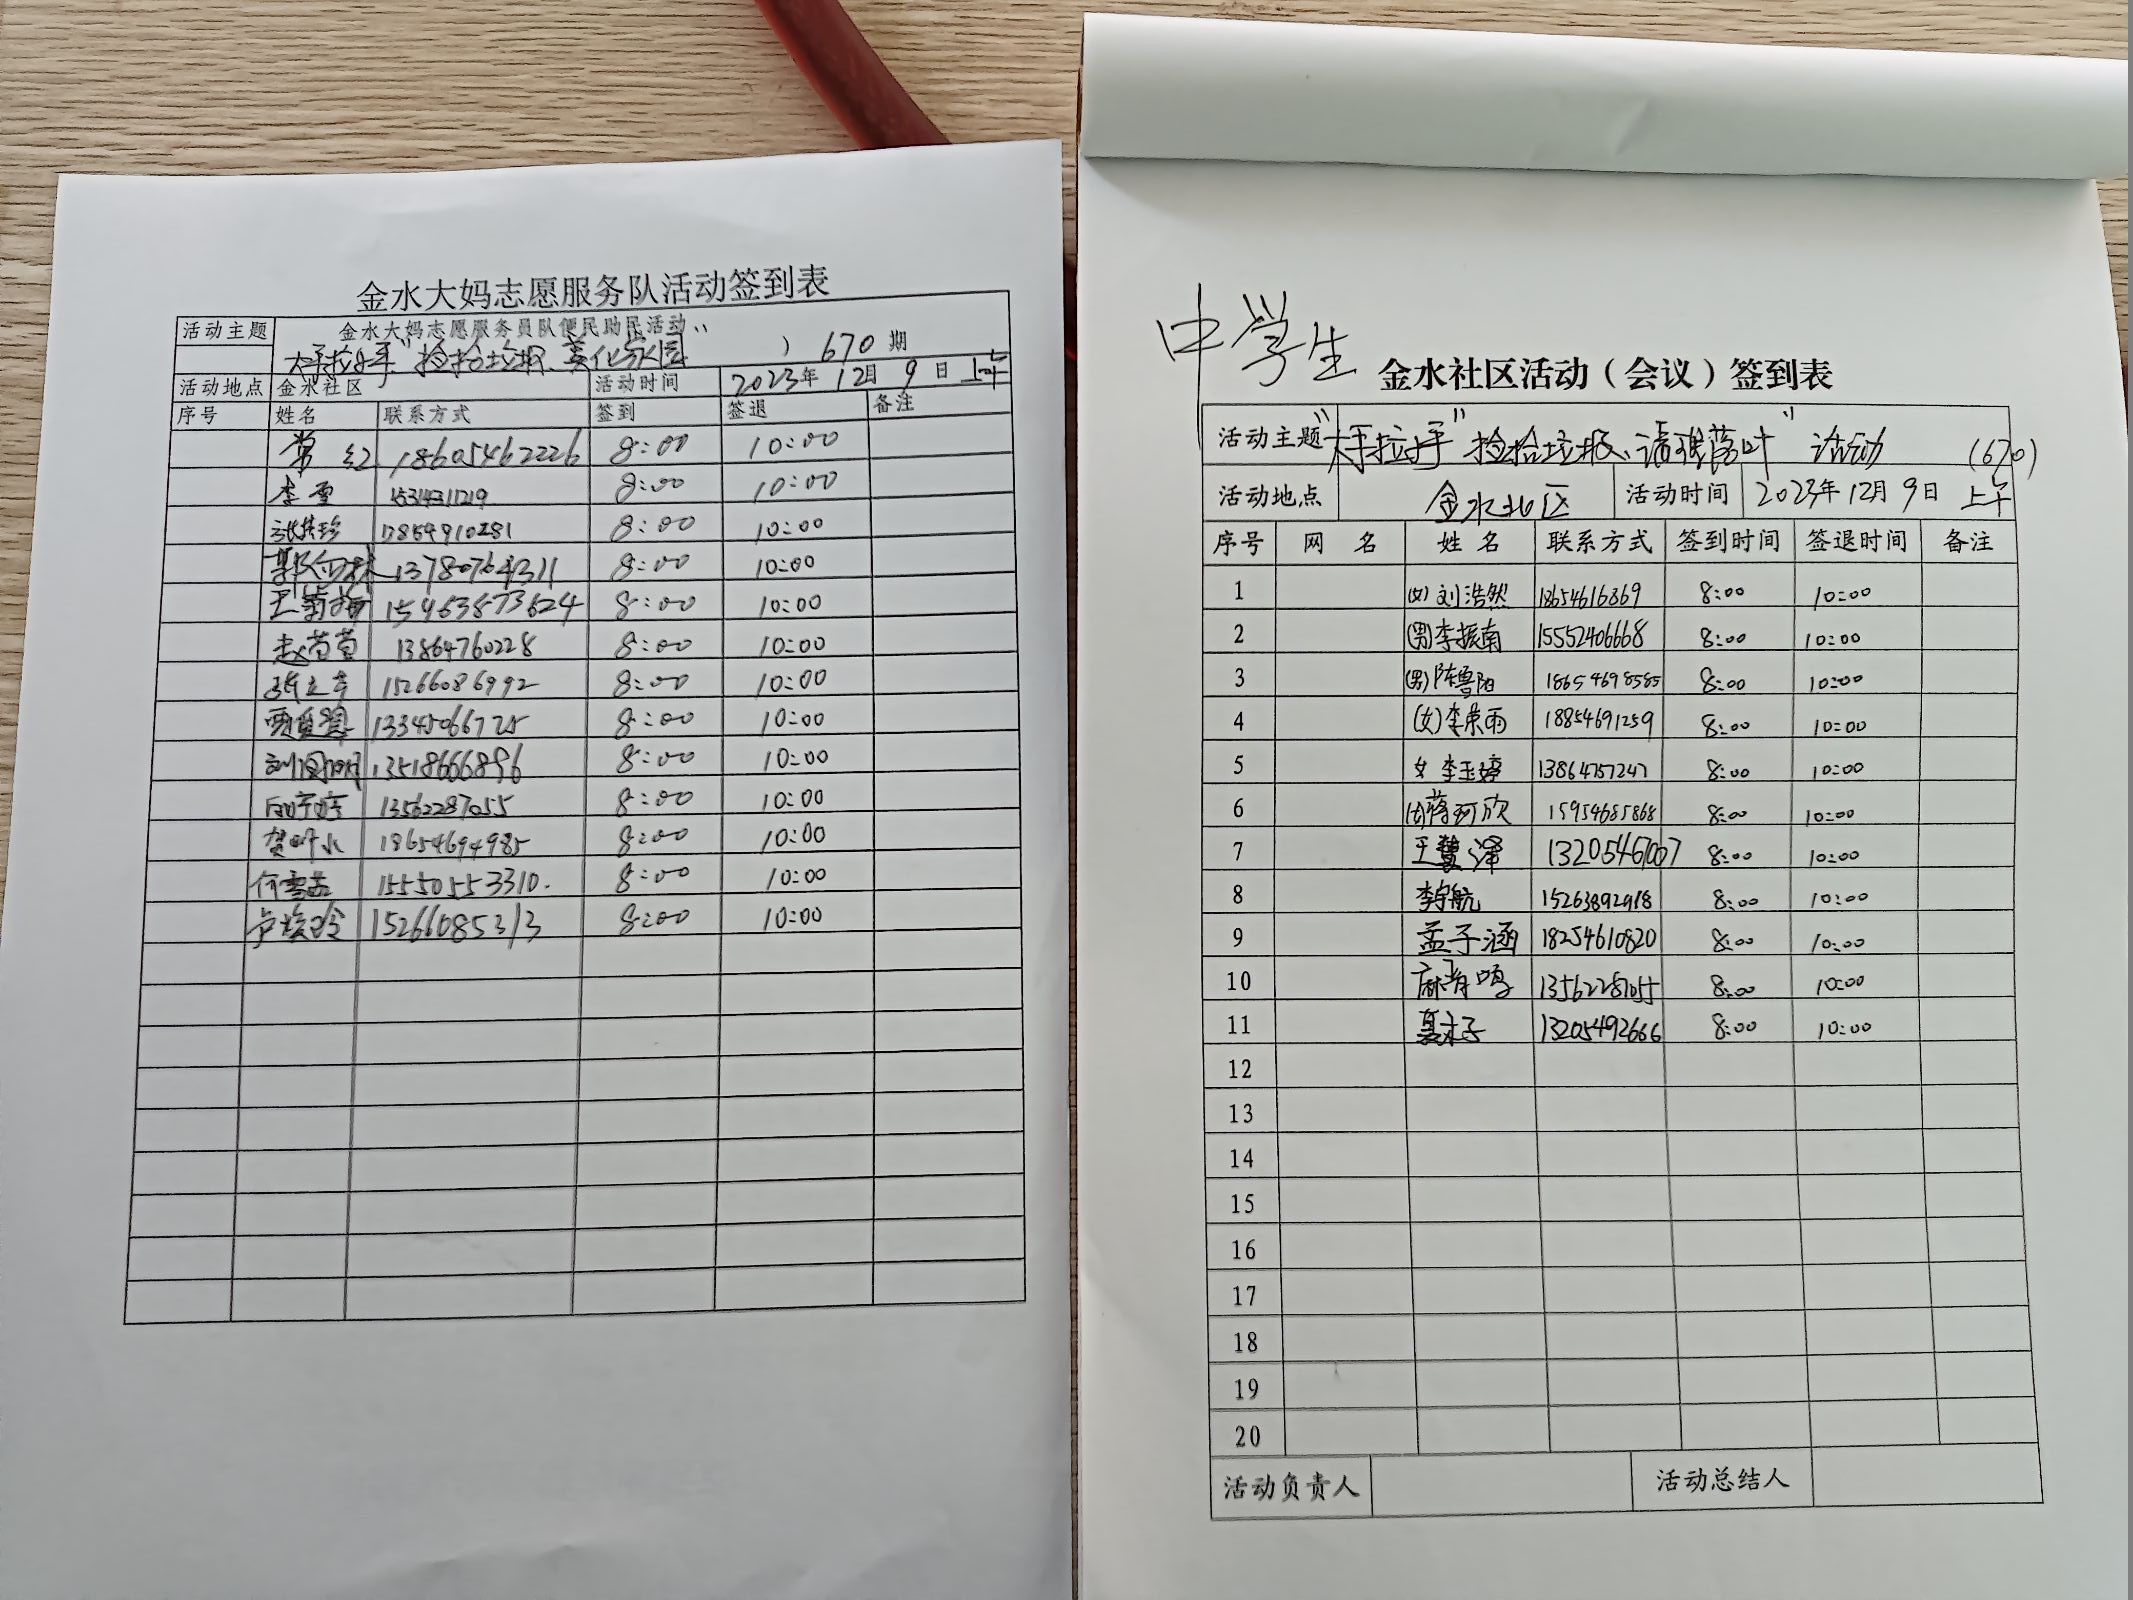 金水大妈志愿服务队活动签到表
活动主题 金水大妈志愿服务员队便民助民活动
大手拉小手"捡拾垃圾、美化家园" ) 670 期
活动地点 金水社区 活动时间 2023年 12月 9日 上午
序号 姓名 联系方式 签到 签退 备注
常红 18605462226 8:00 10:00
李雪 8:00 10:00
17854910281 8:00 10:00
13780764311 8:00 10:00
15963873624 8:00 10:00
赵苗苗 13864760228 8:00 10:00
15266086992 8:00 10:00
13345066725 8:00 10:00
13518666896 8:00 10:00
13562287055 8:00 10:00
18654694985 8:00 10:00
15550553310. 8:00 10:00
15266085313 8:00 10:00
中学生
金水社区活动（会议）签到表
活动主题 "大手拉小手"捡拾垃圾、清理落叶"活动 (670)
活动地点 金水社区 活动时间 2023年12月9日 上午
序号 网 名 姓 名 联系方式 签到时间 签退时间 备注
1 (女)刘浩然 18654616869 8:00 10:00
2 (男)李振南 15552406668 8:00 10:00
3 (男)陈鲁阳 18654698585 8:00 10:00
4 (女)李荣雨 18854691259 8:00 10:00
5 女 李玉婷 13864757247 8:00 10:00
6 (女)蒋珂欣 15954685868 8:00 10:00
7 王慧泽 13205467007 8:00 10:00
8 李宇航 15263892918 8:00 10:00
9 孟子涵 18254610820 8:00 10:00
10 13562287055 8:00 10:00
11 13205492666 8:00 10:00
12
13
14
15
16
17
18
19
20
活动负责人 活动总结人